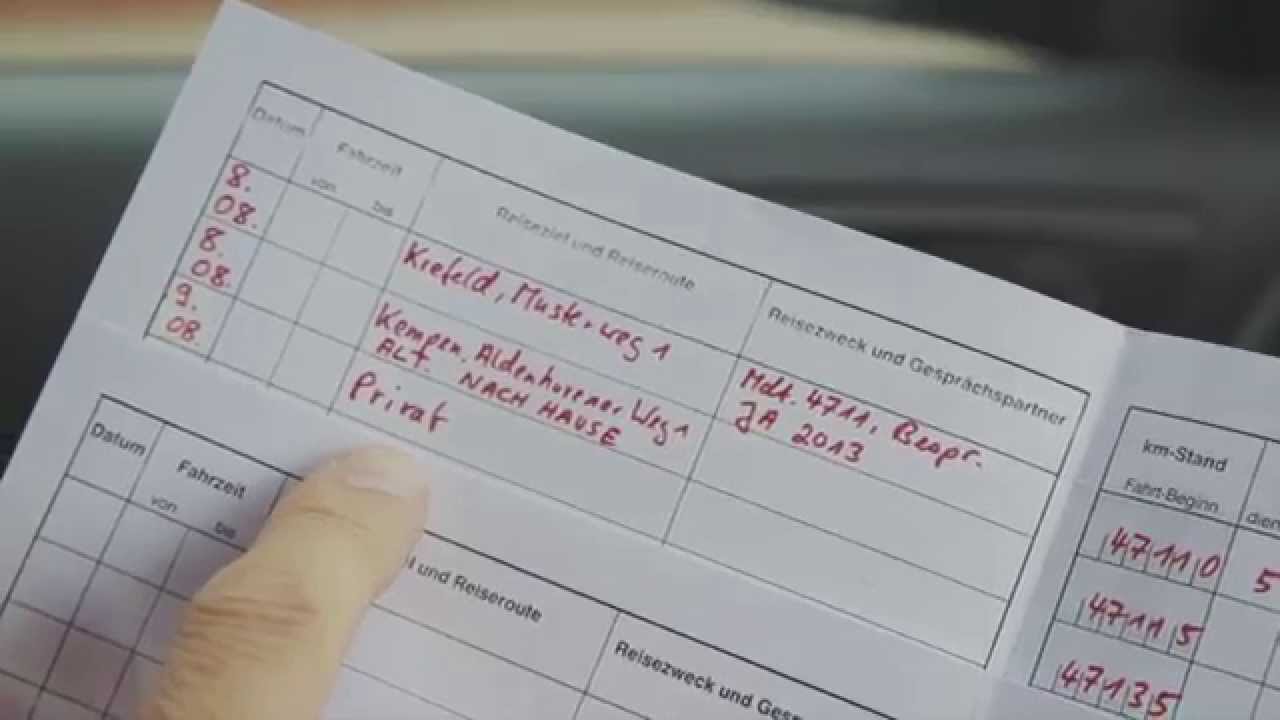 Datum Fahrzeit Reiseziel und Reiseroute Reisezweck und Gesprächspartner km-Stand
von bis Fahrt-Beginn dien
8. 08. Krefeld, Musterweg 1 Mdt. 4711, Bespr. JA 2013 47110 5
8. 08. Kempen, Aldenhovener Weg 1 ALT. NACH HAUSE 47115
9. 08. Privat 47135
Datum Fahrzeit l und Reiseroute Reisezweck und Gesp
von bis